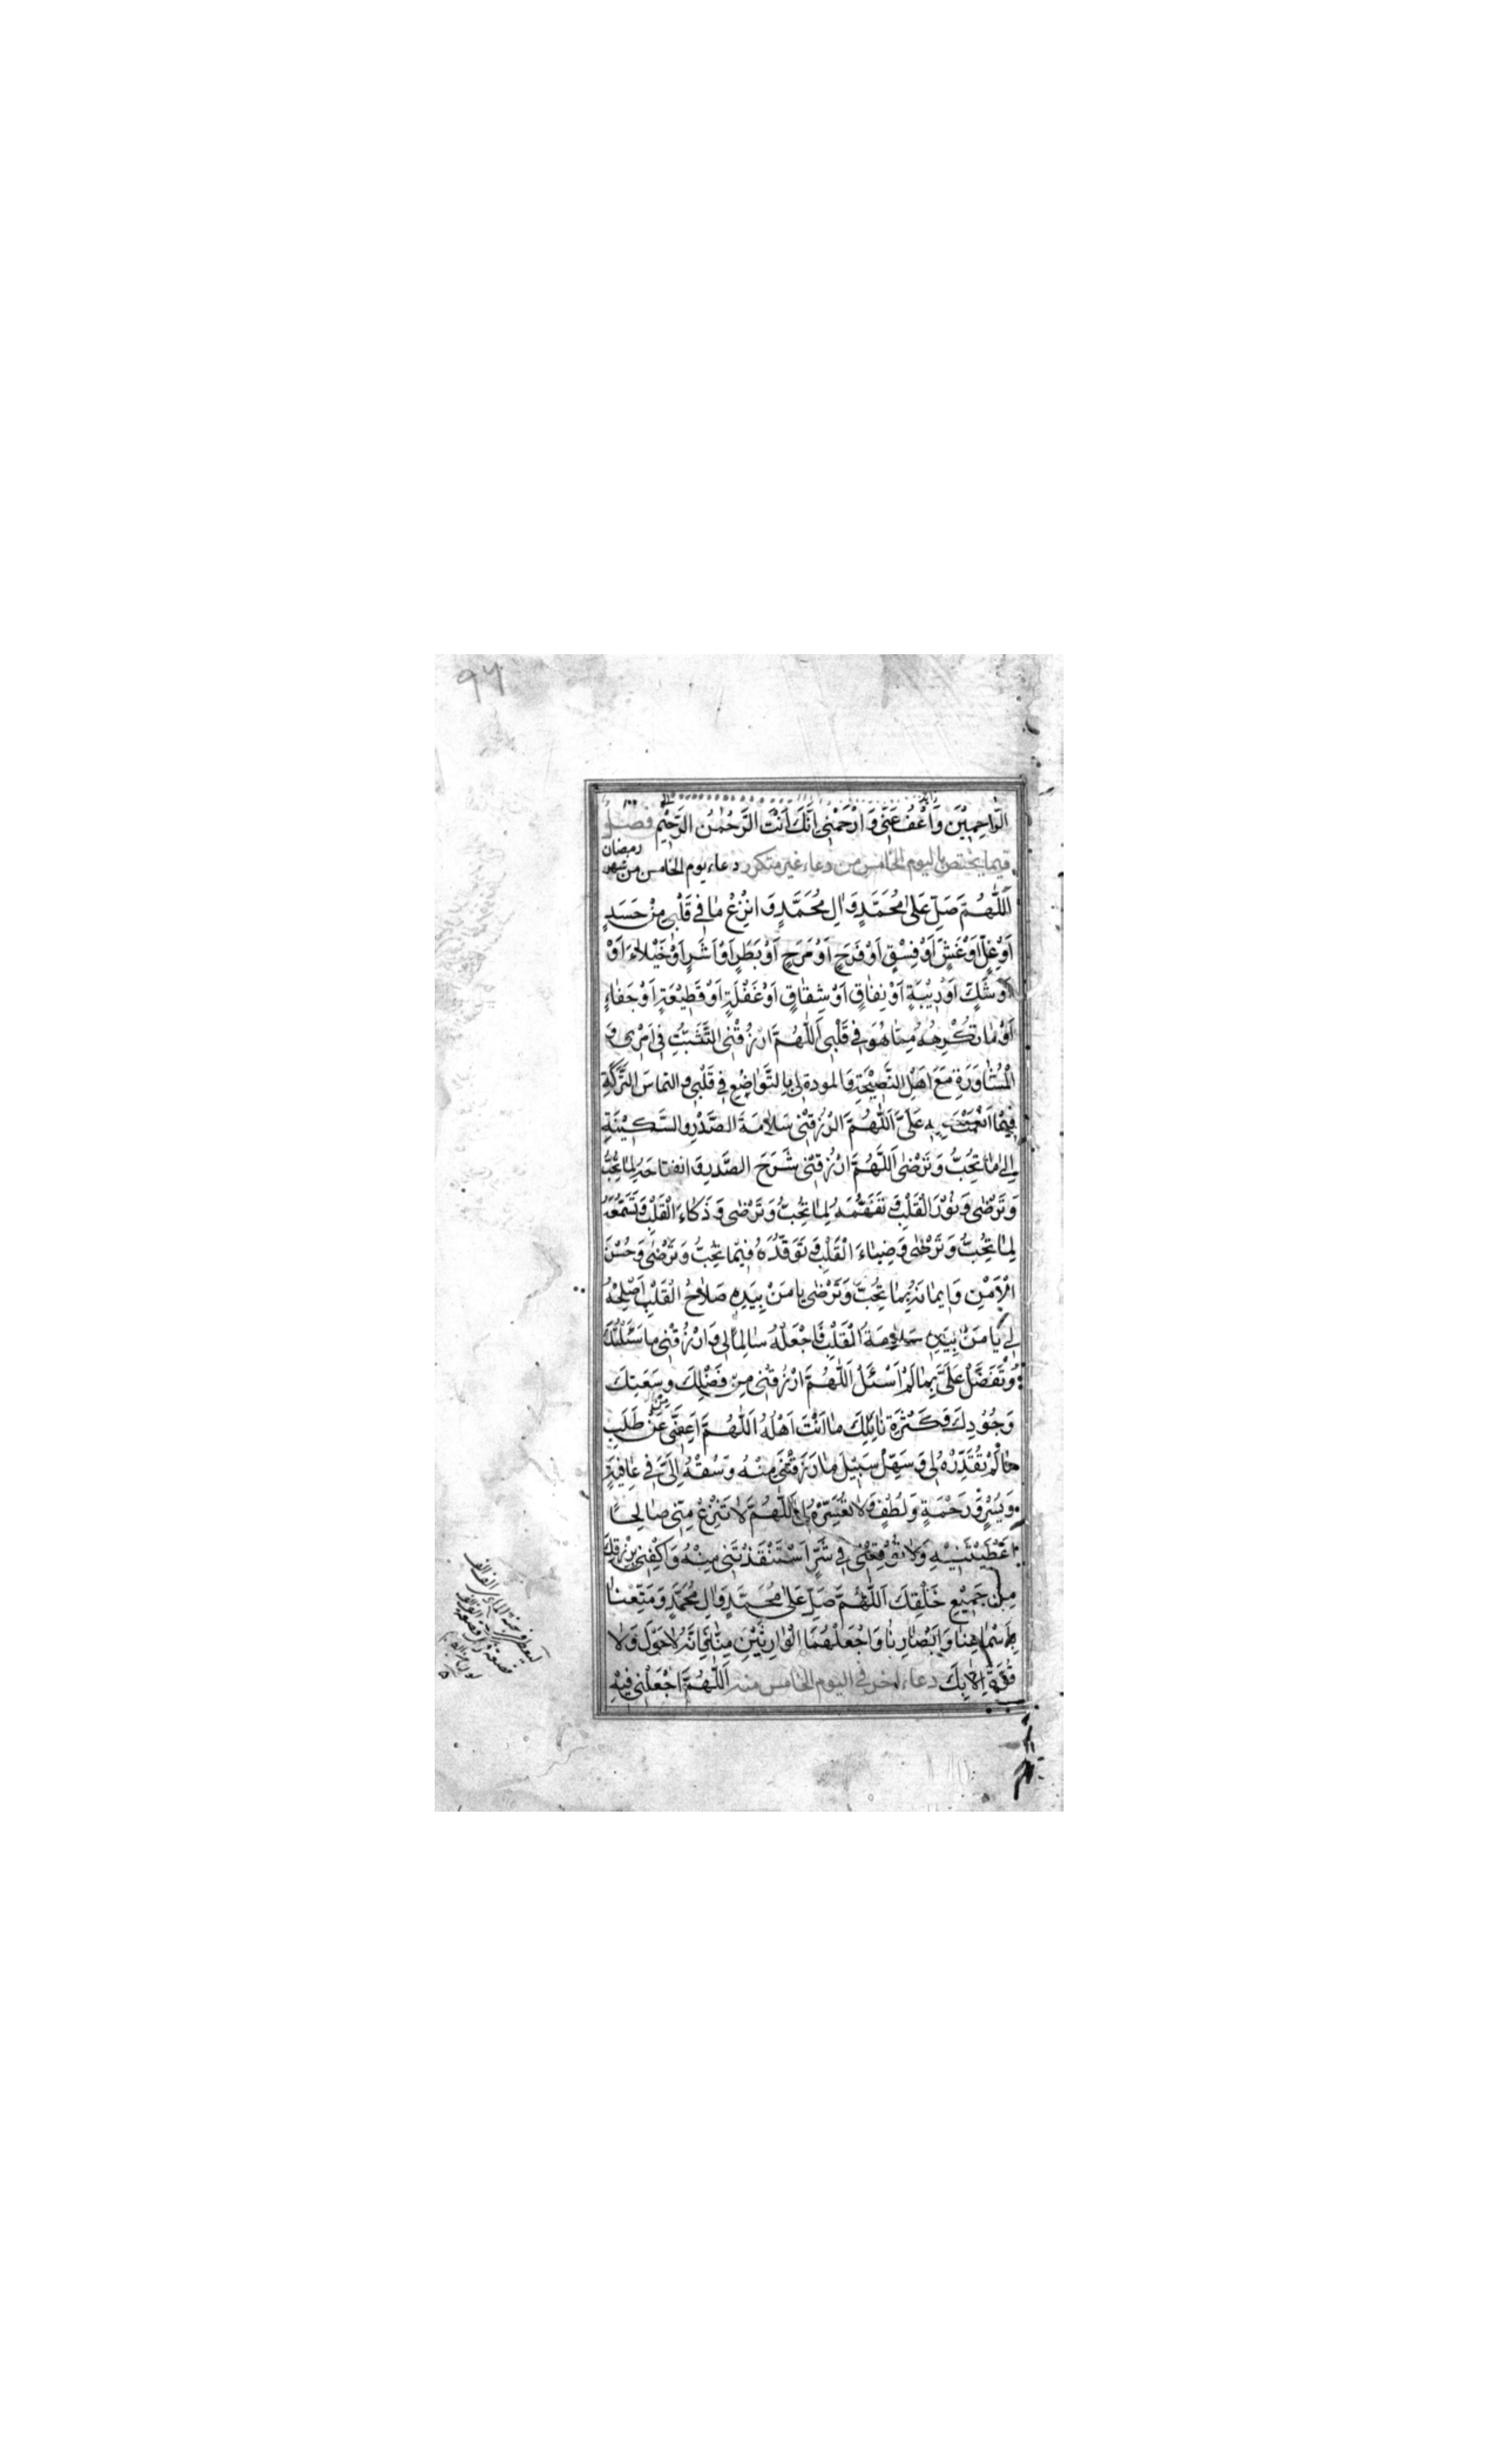 ٩٦
الرَّاحِمِينَ وَاعْفُ عَنِّي وَارْحَمْنِي إِنَّكَ أَنْتَ الرَّحْمٰنُ الرَّحِيمُ فصل
فيما يختص باليوم الخامس من دعاء غير متكرر دعاء يوم الخامس من شهر رمضان
اَللّٰهُمَّ صَلِّ عَلىٰ مُحَمَّدٍ وَاٰلِ مُحَمَّدٍ وَ انْزِعْ مٰا فِي قَلْبِي مِنْ حَسَدٍ
اَوْ غِلٍّ اَوْ غَشٍّ اَوْ فِسْقٍ اَوْ فَرَحٍ اَوْ مَرَحٍ اَوْ بَطَرٍ اَوْ اَشَرٍ اَوْ خَيْلاٰءَ اَوْ
اَوْ شَكٍّ اَوْ رِيْبَةٍ اَوْ نِفٰاقٍ اَوْ شِقٰاقٍ اَوْ غَفْلَةٍ اَوْ قَطِيْعَةٍ اَوْ جَفٰاءٍ
اَوْ مٰا تَكْرِهُهُ مِمّٰا هُوَ فِي قَلْبِي اَللّٰهُمَّ ارْزُقْنِي التَّثَبُّتِ فِي اَمْرِي وَ
الْمُشٰاوَرَةِ مَعَ اَهْلِ النَّصِيْحَةِ وَالمودة لِي بِالتَّوَاضِعِ فِي قَلْبِي و التماسَ الْبَرَكَةِ
فِيْمٰا اَنْعَمْتَ بِهِ عَلَيَّ اَللّٰهُمَّ ارْزُقْنِي سَلاٰمَةَ الصَّدْرِ والسَّكِيْنَةِ
اِلىٰ مٰا تُحِبُّ وَتَرْضىٰ اَللّٰهُمَّ ارْزُقْنِي شَرَحَ الصَّدرِ وَ انفتاحَهُ لِمٰا تُحِبُّ
وَتَرْضىٰ وَنُوْرَ الْقَلْبِ وَتَفَهُّمَهُ لِمٰا تُحِبُّ وَتَرْضىٰ وَذَكٰاءَ الْقَلْبِ وَتَسَمُّعَهُ
لِمٰا تُحِبُّ وَتَرْضىٰ وَضِيٰاءَ الْقَلْبِ وَتَوَقُّدَهُ فِيْمٰا تُحِبُّ وَتَرْضىٰ وَحُسْنَ
الْاَمْنِ وَاِيمٰانَهُ بِمٰا تُحِبُّ وَتَرْضىٰ يٰا مَنْ بِيَدِهِ صَلاٰحُ الْقَلْبِ اَصْلِحْهُ
لِي يٰا مَنْ بِيَدِهِ سَلاٰمَةُ الْقَلْبِ فَاجْعَلْهُ سٰالِمًا لِي وَارْزُقْنِي مٰا سَئَلْتُكَ
وَتَفَضَّلْ عَلَيَّ بِمٰا لَمْ اَسْئَلْ اَللّٰهُمَّ ارْزُقْنِي مِنْ فَضْلِكَ وسِعَتِكَ
وَجُوْدِكَ وَكَثْرَةِ نٰائِلِكَ مٰا اَنْتَ اَهْلُهُ اَللّٰهُمَّ اَعِفَّنِي عَنْ طَلَبِ
مٰا لَمْ تُقَدِّرْهُ لِي وَ سَهِّلْ سَبِيْلَ مٰا رَزَقْتَنِي مِنْهُ وَسُقْهُ اِلَيَّ فِي عٰافِيَةٍ
وَيُسْرٍ وَّ رَحْمَةٍ وَلُطْفٍ وَلاٰ تُعَسِّرْهُ لِي اَللّٰهُمَّ لاٰ تَنْزِعْ مِنِّي صٰالِحًا
اَعْطَيْتَنِيْهِ وَلاٰ تُوْقِعْنِي فِي شَرٍّ اسْتَنْقَذْتَنِي مِنْهُ وَاكْفِنِي بِرِزْقِكَ
مِنْ جَمِيْعِ خَلْقِكَ اَللّٰهُمَّ صَلِّ عَلىٰ مُحَمَّدٍ وَاٰلِ مُحَمَّدٍ وَمَتِّعْنٰا
بِاَسْمٰاعِنٰا وَاَبْصٰارِنٰا وَاجْعَلْهُمٰا الْوٰارِثَيْنِ مِنّٰا فَاِنَّهُ لاٰ حَوْلَ وَلاٰ
قُوَّةَ اِلاّٰ بِكَ دعاء اخر في اليوم الخامس منه اَللّٰهُمَّ اجْعَلْنِي فِيْهِ